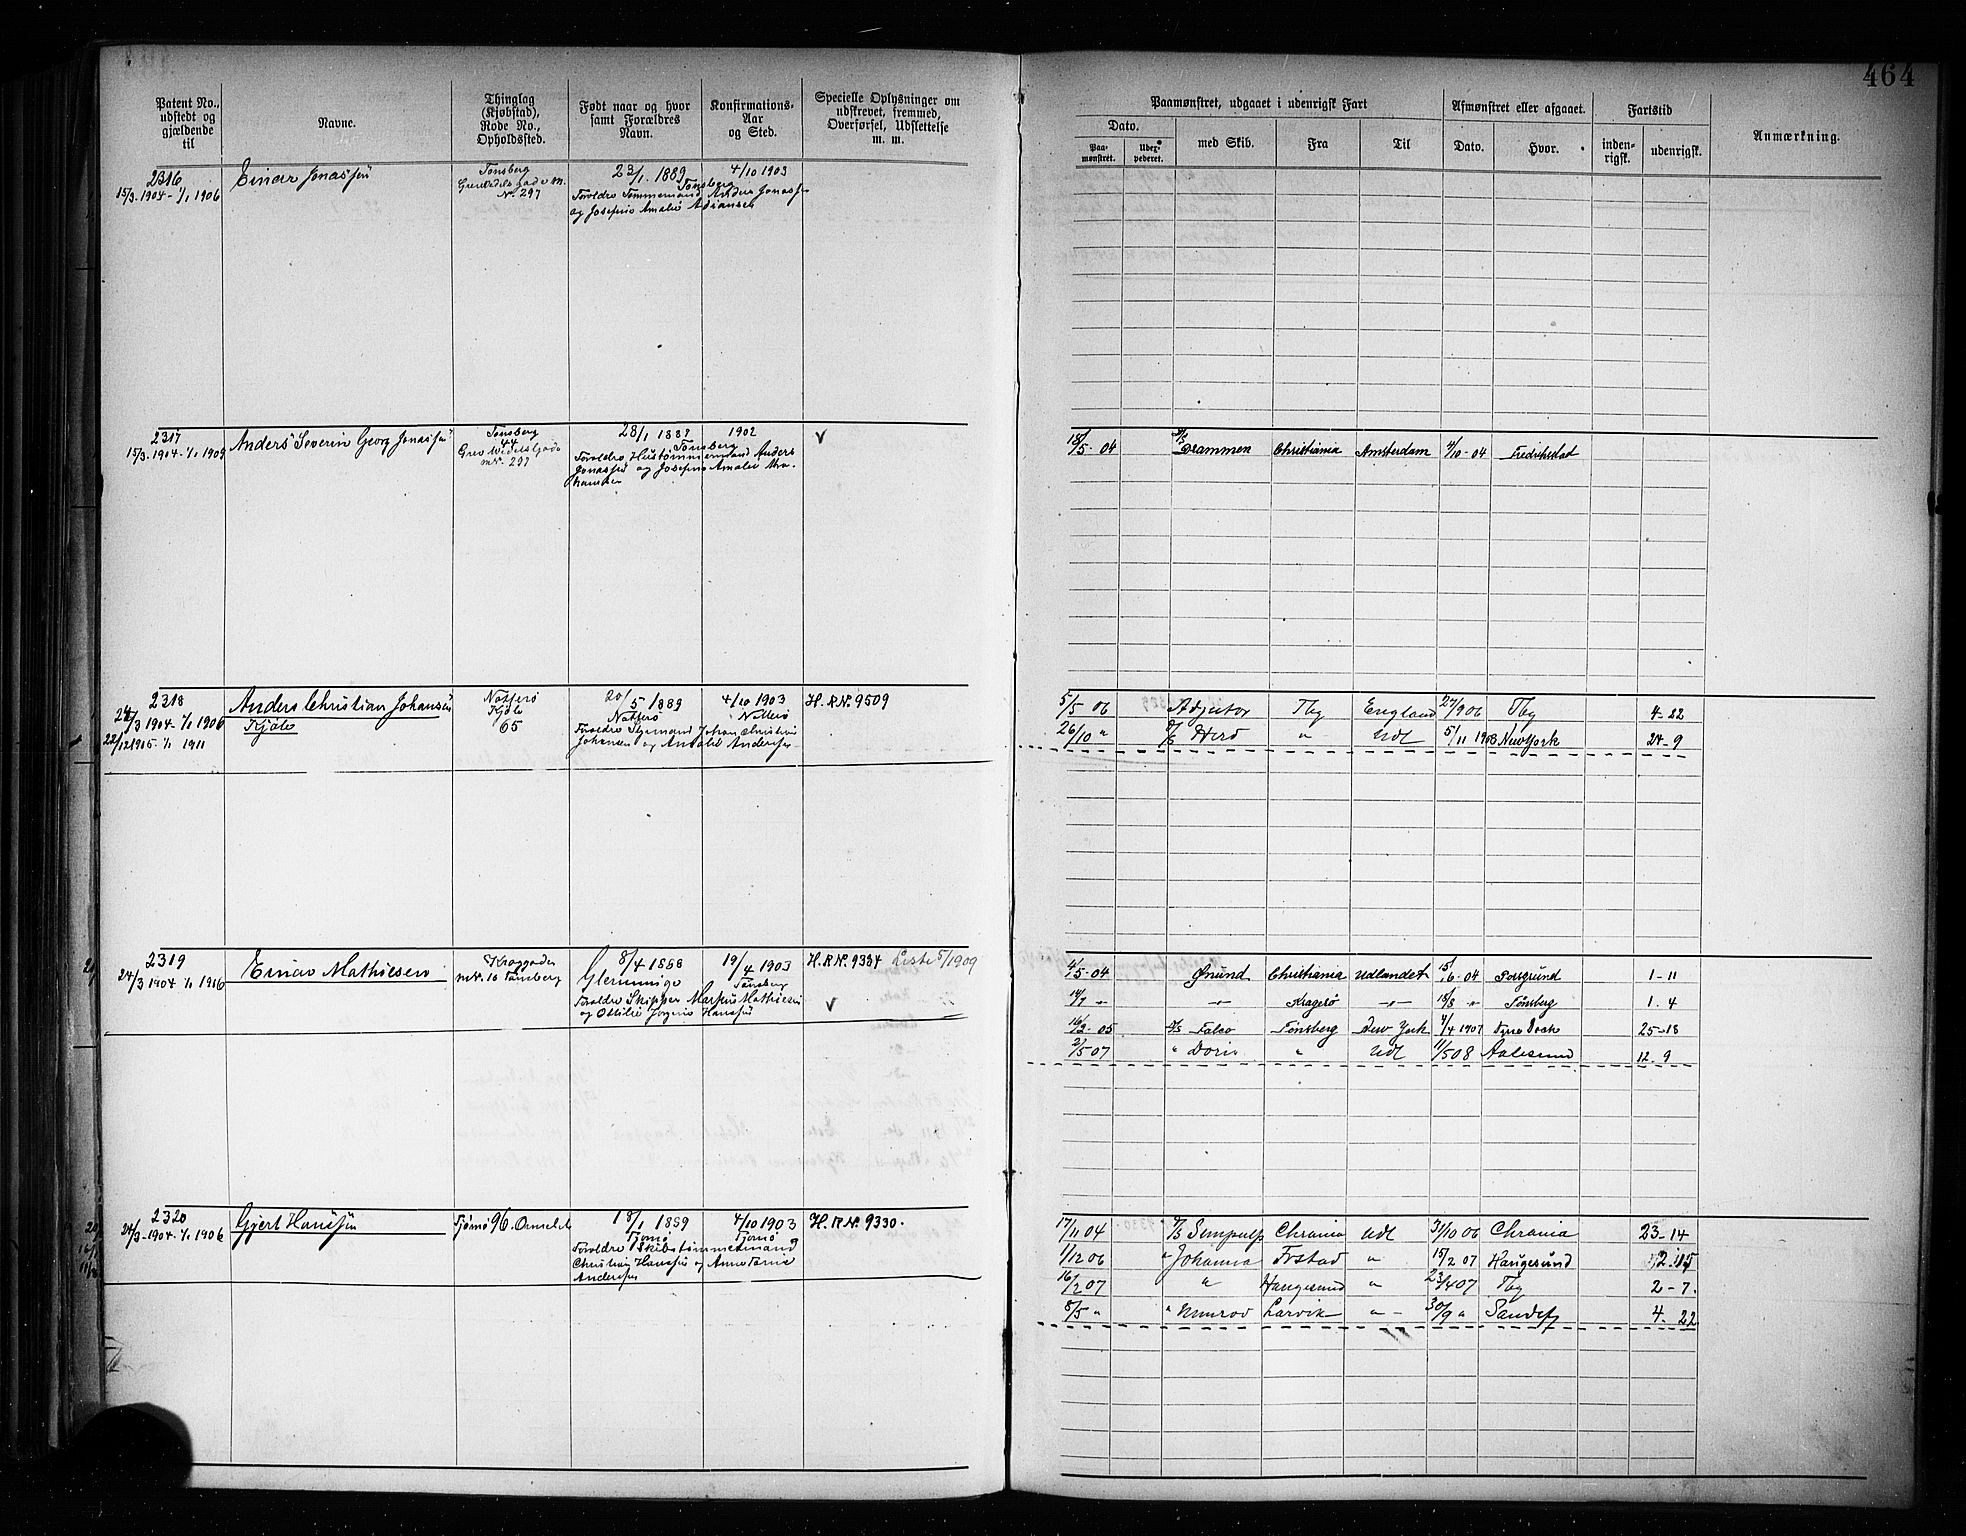 464
Patent No., udstedt og gjældende til
Navne.
Thinglag (Kjøbstad), Rode No., Opholdssted.
Født naar og hvor samt Forældres Navn.
Konfirmations-Aar og Sted.
Specielle Oplysninger om udskrevet, fremmed, Overførsel, Udslettelse m. m.
Paamønstret, udgaaet i udenrigsk Fart
Afmønstret eller afgaaet.
Fartstid
Anmærkning.
Dato.
Paamønstret.
med Skib.
Fra
Til
Dato.
Hvor.
inden-rigsk.
udenrigsk.
2316
15/3-1904-1/1 1906
Einar Jonassen
Tønsberg
No 297
23/1. 1889
Tønsberg
4/10 1903
Forældre Tømmermand Anders Jonassen
og Josefine Amalie
2317
15/3-1904-1/1 1909
Anders Severin Georg Jonassen
Tønsberg
44
Grev Wedels Gade
No. 297
28/1 1887
Tønsberg
1902
Forældre Hustømmermand Anders
Jonassen og Josefine Amalie
V
18/5-04 Drammen Christiania Amsterdam 4/10-04 Fredrikstad
2318
24/3 1904-1/1 1906
1/1 1911
Anders Christian Johansen
Kjøle
Nøtterø
Kjøle
65
20/5 1889
Nøtterø
4/10 1903
Nøtterø
Forældre Sjømand Johan Christian
Johansen og Amalie Andersen
H. R. No. 9509
5/5 06 Adjutor Tbg England 27/9 06 Tbg 4-22
26/10 " S/S Herd " Udl 5/11 1908 New York 24-9
2319
24/3 1904 1/1 1906
Einar Mathiesen
No. 10 Tønsberg
8/4 1888
19/4 1903
Tønsberg
Forældre Skipper Marius Mathiesen
og Ottilie Jørgine Hansen
H. R No. 9334 Liste 5/1909
V
4/5-04 Grund Christiania Udlandet 15/6-04 Porsgrund 1-11
14/7 " -"- Kragerø -"- 15/8 " Tønsberg 1.4
16/2-05 S/S Falco Tønsberg New York 4/4 1907 25-18
2/5-07 " Doris " Udl 11/5 08 Aalesund 12-9
2320
24/3-1904-1/1 1906
Gjert Hansen
Tjømø 96.
18/1 1889
Tjømø
4/10 1903
Tjømø
Forældre Skibstømmermand
Christian Hansen og Anne
Andersen
H. R No. 9330.
17/11 04 Chrania Udl 31/10 06 Chrania 23-14
1/12 06 " Johanna Frstad " 15/2 07 Haugesund 2.15
16/2 07 " Haugesund " 23/4 07 Tbg 2-7.
8/5 " " Nimrod Larvik " - 30/9 " Sandefj 4.22